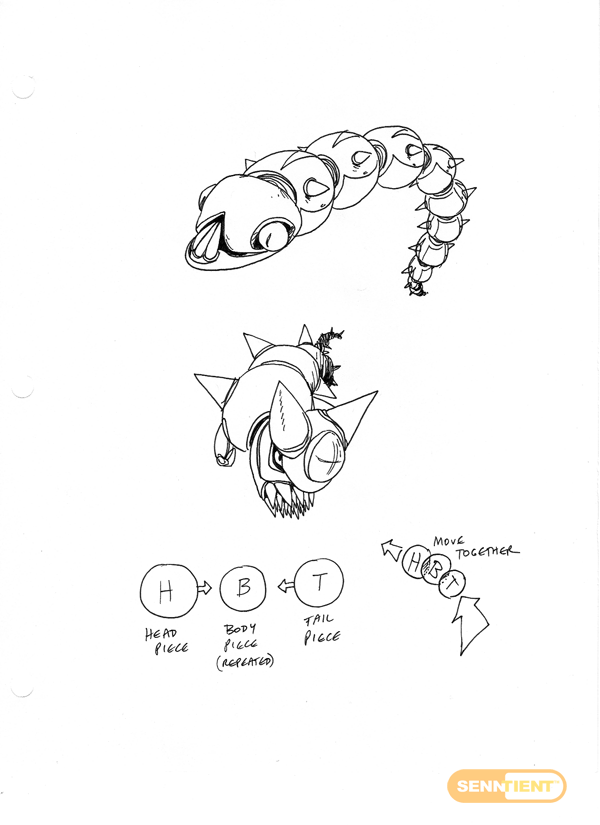 H
B
T
HEAD
PIECE
BODY
PIECE
(REPEATED)
TAIL
PIECE
MOVE
TOGETHER
H
B
T
SENNTIENT™